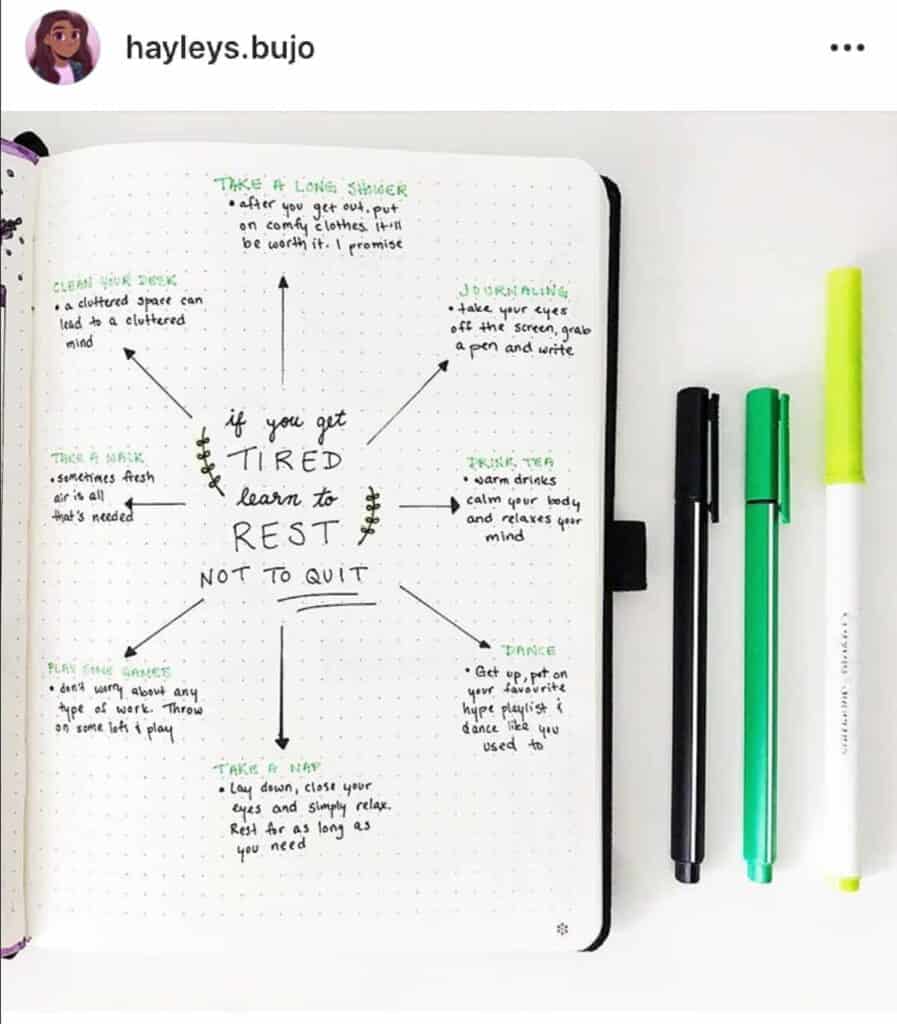 hayleys.bujo
TAKE A LONG SHOWER
• after you get out, put
on comfy clothes. It'll
be worth it. I promise
CLEAN YOUR DESK
• a cluttered space can
lead to a cluttered
mind
JOURNALING
• take your eyes
off the screen, grab
a pen and write
if you get
TIRED
learn to
REST
NOT TO QUIT
TAKE A WALK
• sometimes fresh
air is all
that's needed
DRINK TEA
• warm drinks
calm your body
and relaxes your
mind
PLAY SOME GAMES
• don't worry about any
type of work. Throw
on some lofi & play
DANCE
• Get up, put on
your favourite
hype playlist &
dance like you
used to
TAKE A NAP
• Lay down, close your
eyes and simply relax.
Rest for as long as
you need